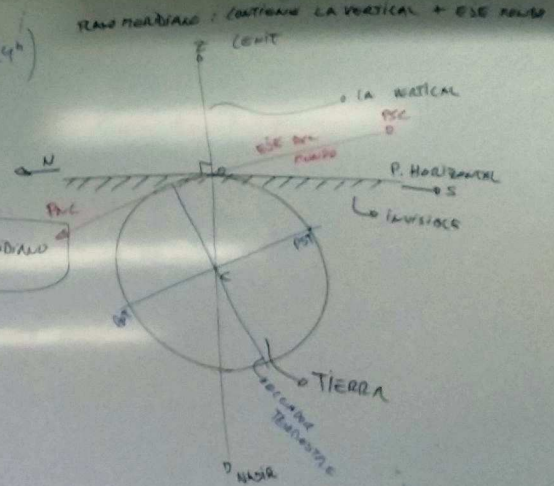 PLANO MERIDIANO : CONTIENE LA VERTICAL + EJE MUNDO
Z
CENIT
LA VERTICAL
PSC
EJE DEL
MUNDO
N
P. HORIZONTAL
S
INVISIBLE
PNC
DIANO
PST
C
TIERRA
ECUADOR
TERRESTRE
NADIR